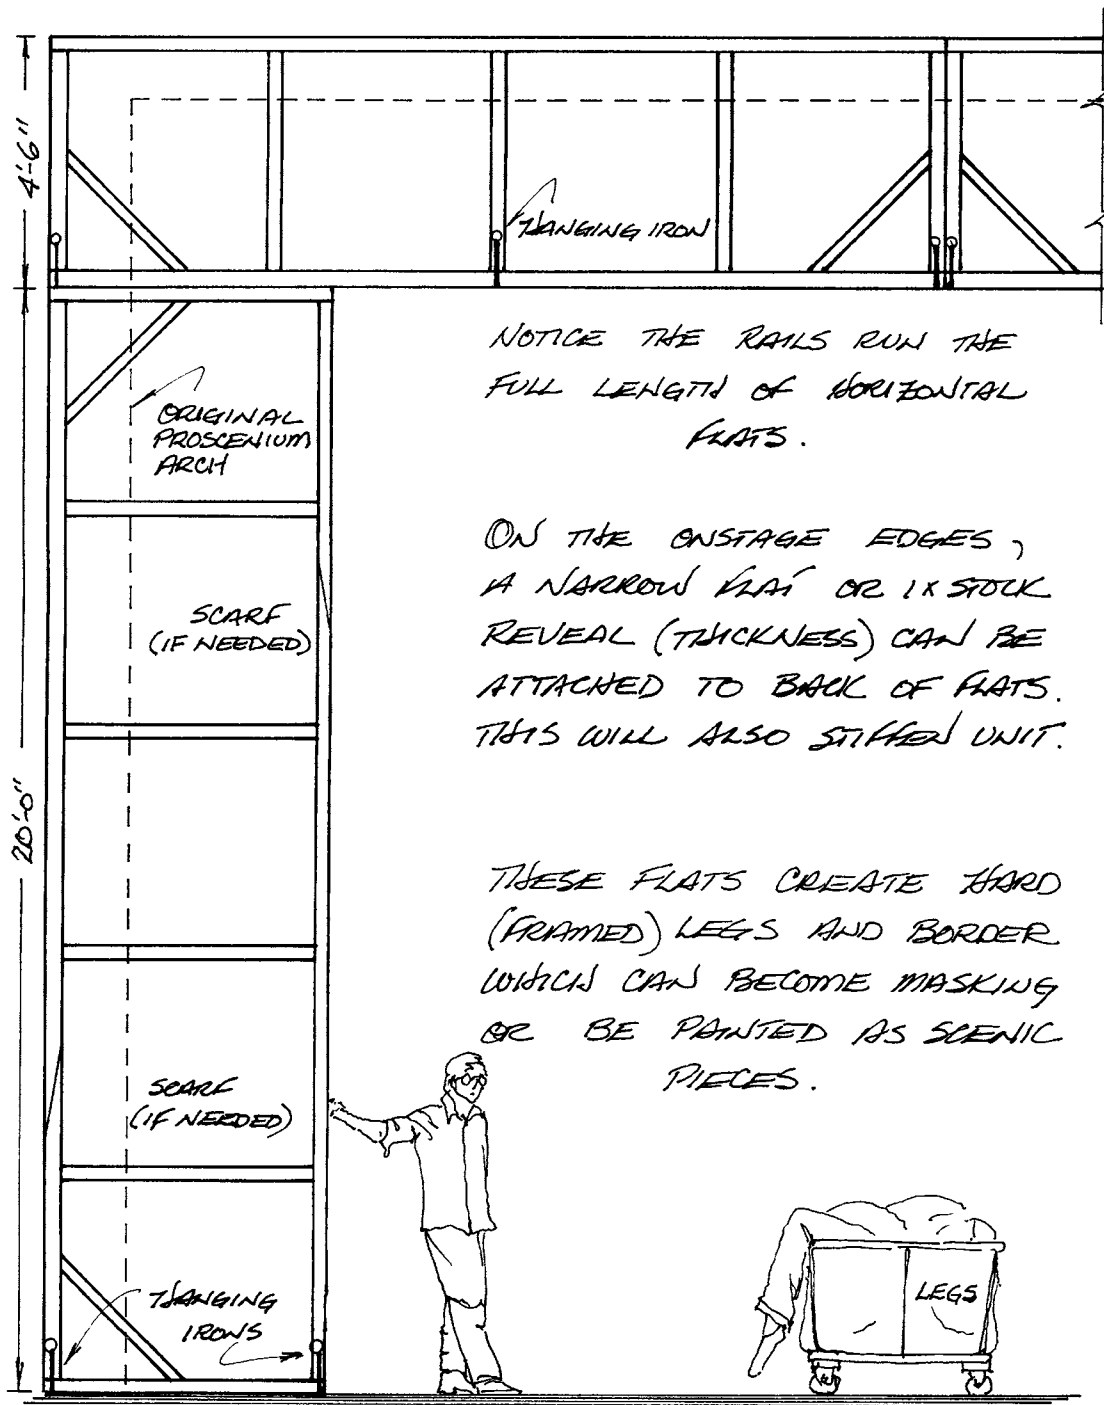 4'-6"
HANGING IRON
NOTICE THE RAILS RUN THE
FULL LENGTH OF HORIZONTAL
FLATS.
ORIGINAL
PROSCENIUM
ARCH
ON THE ONSTAGE EDGES,
A NARROW FLAT OR 1X STOCK
REVEAL (THICKNESS) CAN BE
ATTACHED TO BACK OF FLATS.
THIS WILL ALSO STIFFEN UNIT.
SCARF
(IF NEEDED)
20'-0"
THESE FLATS CREATE HARD
(FRAMED) LEGS AND BORDER
WHICH CAN BECOME MASKING
OR BE PAINTED AS SCENIC
PIECES.
SCARF
(IF NEEDED)
HANGING
IRONS
LEGS